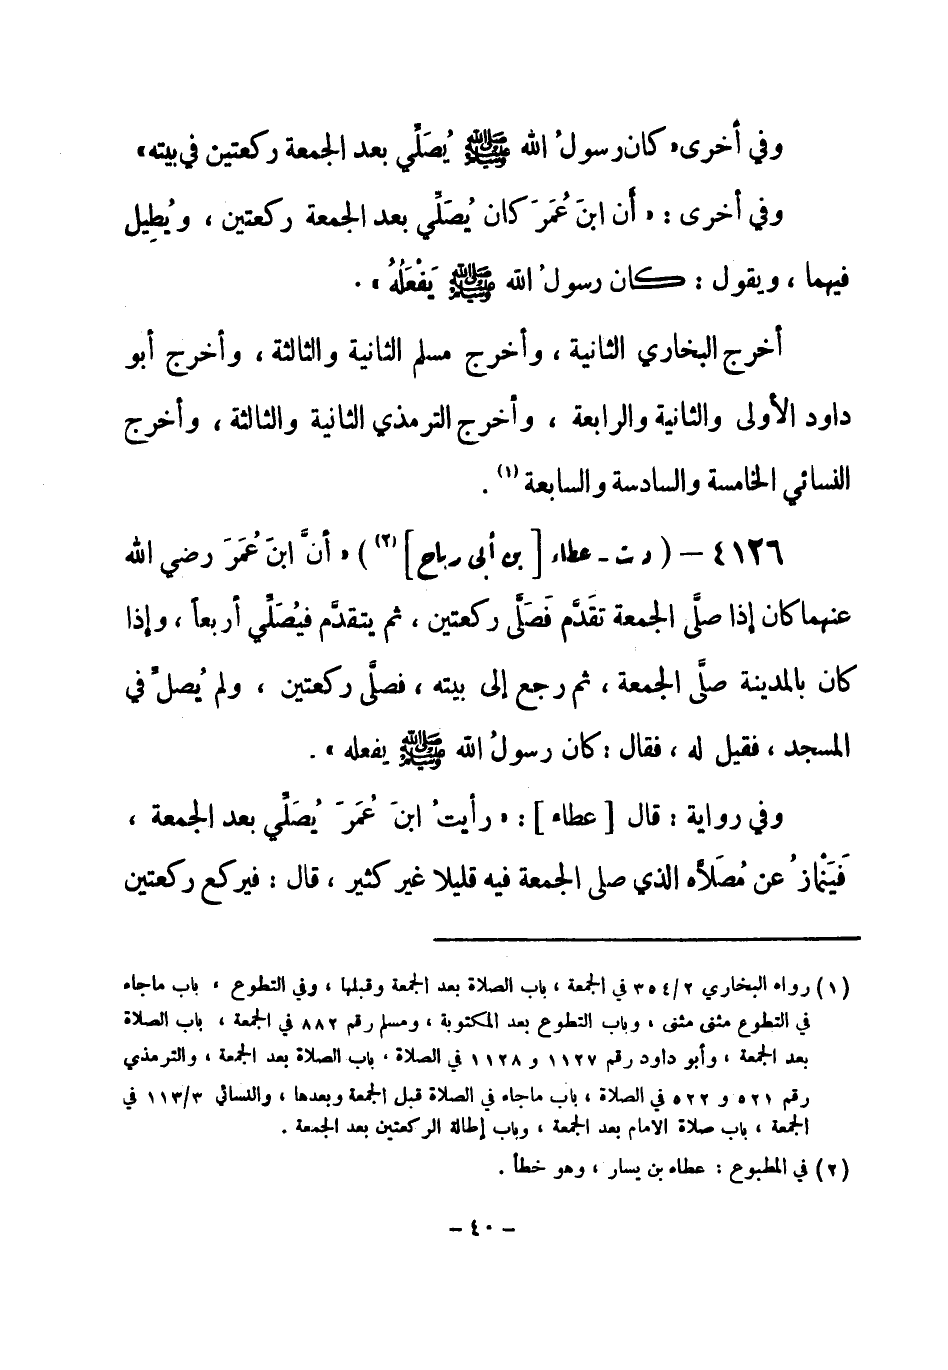 وفي أخرى « كان رسولُ الله ﷺ يُصَلِّي بعد الجمعة ركعتين في بيته »
وفي أخرى : « أن ابنَ عُمَرَ كان يُصَلِّي بعد الجمعة ركعتين ، ويُطِيل
فيهما ، ويقول : كان رسولُ الله ﷺ يَفْعَلُهُ » .
أخرج البخاري الثانية ، وأخرج مسلم الثانية والثالثة ، وأخرج أبو
داود الأولى والثانية والرابعة ، وأخرج الترمذي الثانية والثالثة ، وأخرج
النسائي الخامسة والسادسة والسابعة (١) .
٤١٢٦ – ( د ت ـ عطاء [ بن أبي رباح ] (٢) ) « أنَّ ابنَ عُمَرَ رضي الله
عنهما كان إذا صلَّى الجمعة تقدَّم فَصَلَّى ركعتين ، ثم يتقدَّم فيُصَلِّي أربعاً ، وإذا
كان بالمدينة صلَّى الجمعة ، ثم رجع إلى بيته ، فصلَّى ركعتين ، ولم يُصلِّ في
المسجد ، فقيل له ، فقال : كان رسولُ الله ﷺ يفعله » .
وفي رواية : قال [ عطاء ] : « رأيتُ ابنَ عُمَرَ يُصَلِّي بعد الجمعة ،
فَيَنْمازُ عن مُصَلاَّه الذي صلى الجمعة فيه قليلا غير كثير ، قال : فيركع ركعتين
(١) رواه البخاري ٢/٣٥٤ في الجمعة ، باب الصلاة بعد الجمعة وقبلها ، وفي التطوع ، باب ماجاء
في التطوع مثنى مثنى ، وباب التطوع بعد المكتوبة ، ومسلم رقم ٨٨٢ في الجمعة ، باب الصلاة
بعد الجمعة ، وأبو داود رقم ١١٢٧ و ١١٢٨ في الصلاة ، باب الصلاة بعد الجمعة ، والترمذي
رقم ٥٢١ و ٥٢٢ في الصلاة ، باب ماجاء في الصلاة قبل الجمعة وبعدها ، والنسائي ٣/١١٣ في
الجمعة ، باب صلاة الامام بعد الجمعة ، وباب إطالة الركعتين بعد الجمعة .
(٢) في المطبوع : عطاء بن يسار ، وهو خطأ .
– ٤٠ –